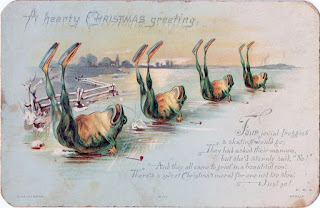 A hearty CHRISTMAS greeting,
Four jovial froggies
a skating would go;
They had asked their mamma,
but she'd sternly said, "No!"
And they all came to grief in a beautiful row.
There's a sweet Christmas moral for one not too slow.
Just go!